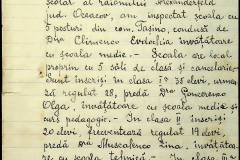 școlar al raionului Alexanderfeld
jud. Oceacov, am inspectat școala cu
5 posturi din com. Tașino, condusă de
Dra Climenco Evdochia, învățătoare
cu școala medie. - Școala are local
propriu cu 5 săli de clasă și cancelarie.
Sunt înscriși în clasa I 35 elevi, urmea-
ză regulat 28, predă Dra Goncerenco
Olga, învățătoare cu școala medie și
curs pedagogic. - În clasa II înscriși
20 elevi, frecventează regulat 19 elevi,
predă Dra Muscafenco Lina, învățătoa-
re cu școala tehnică. - În clasa III